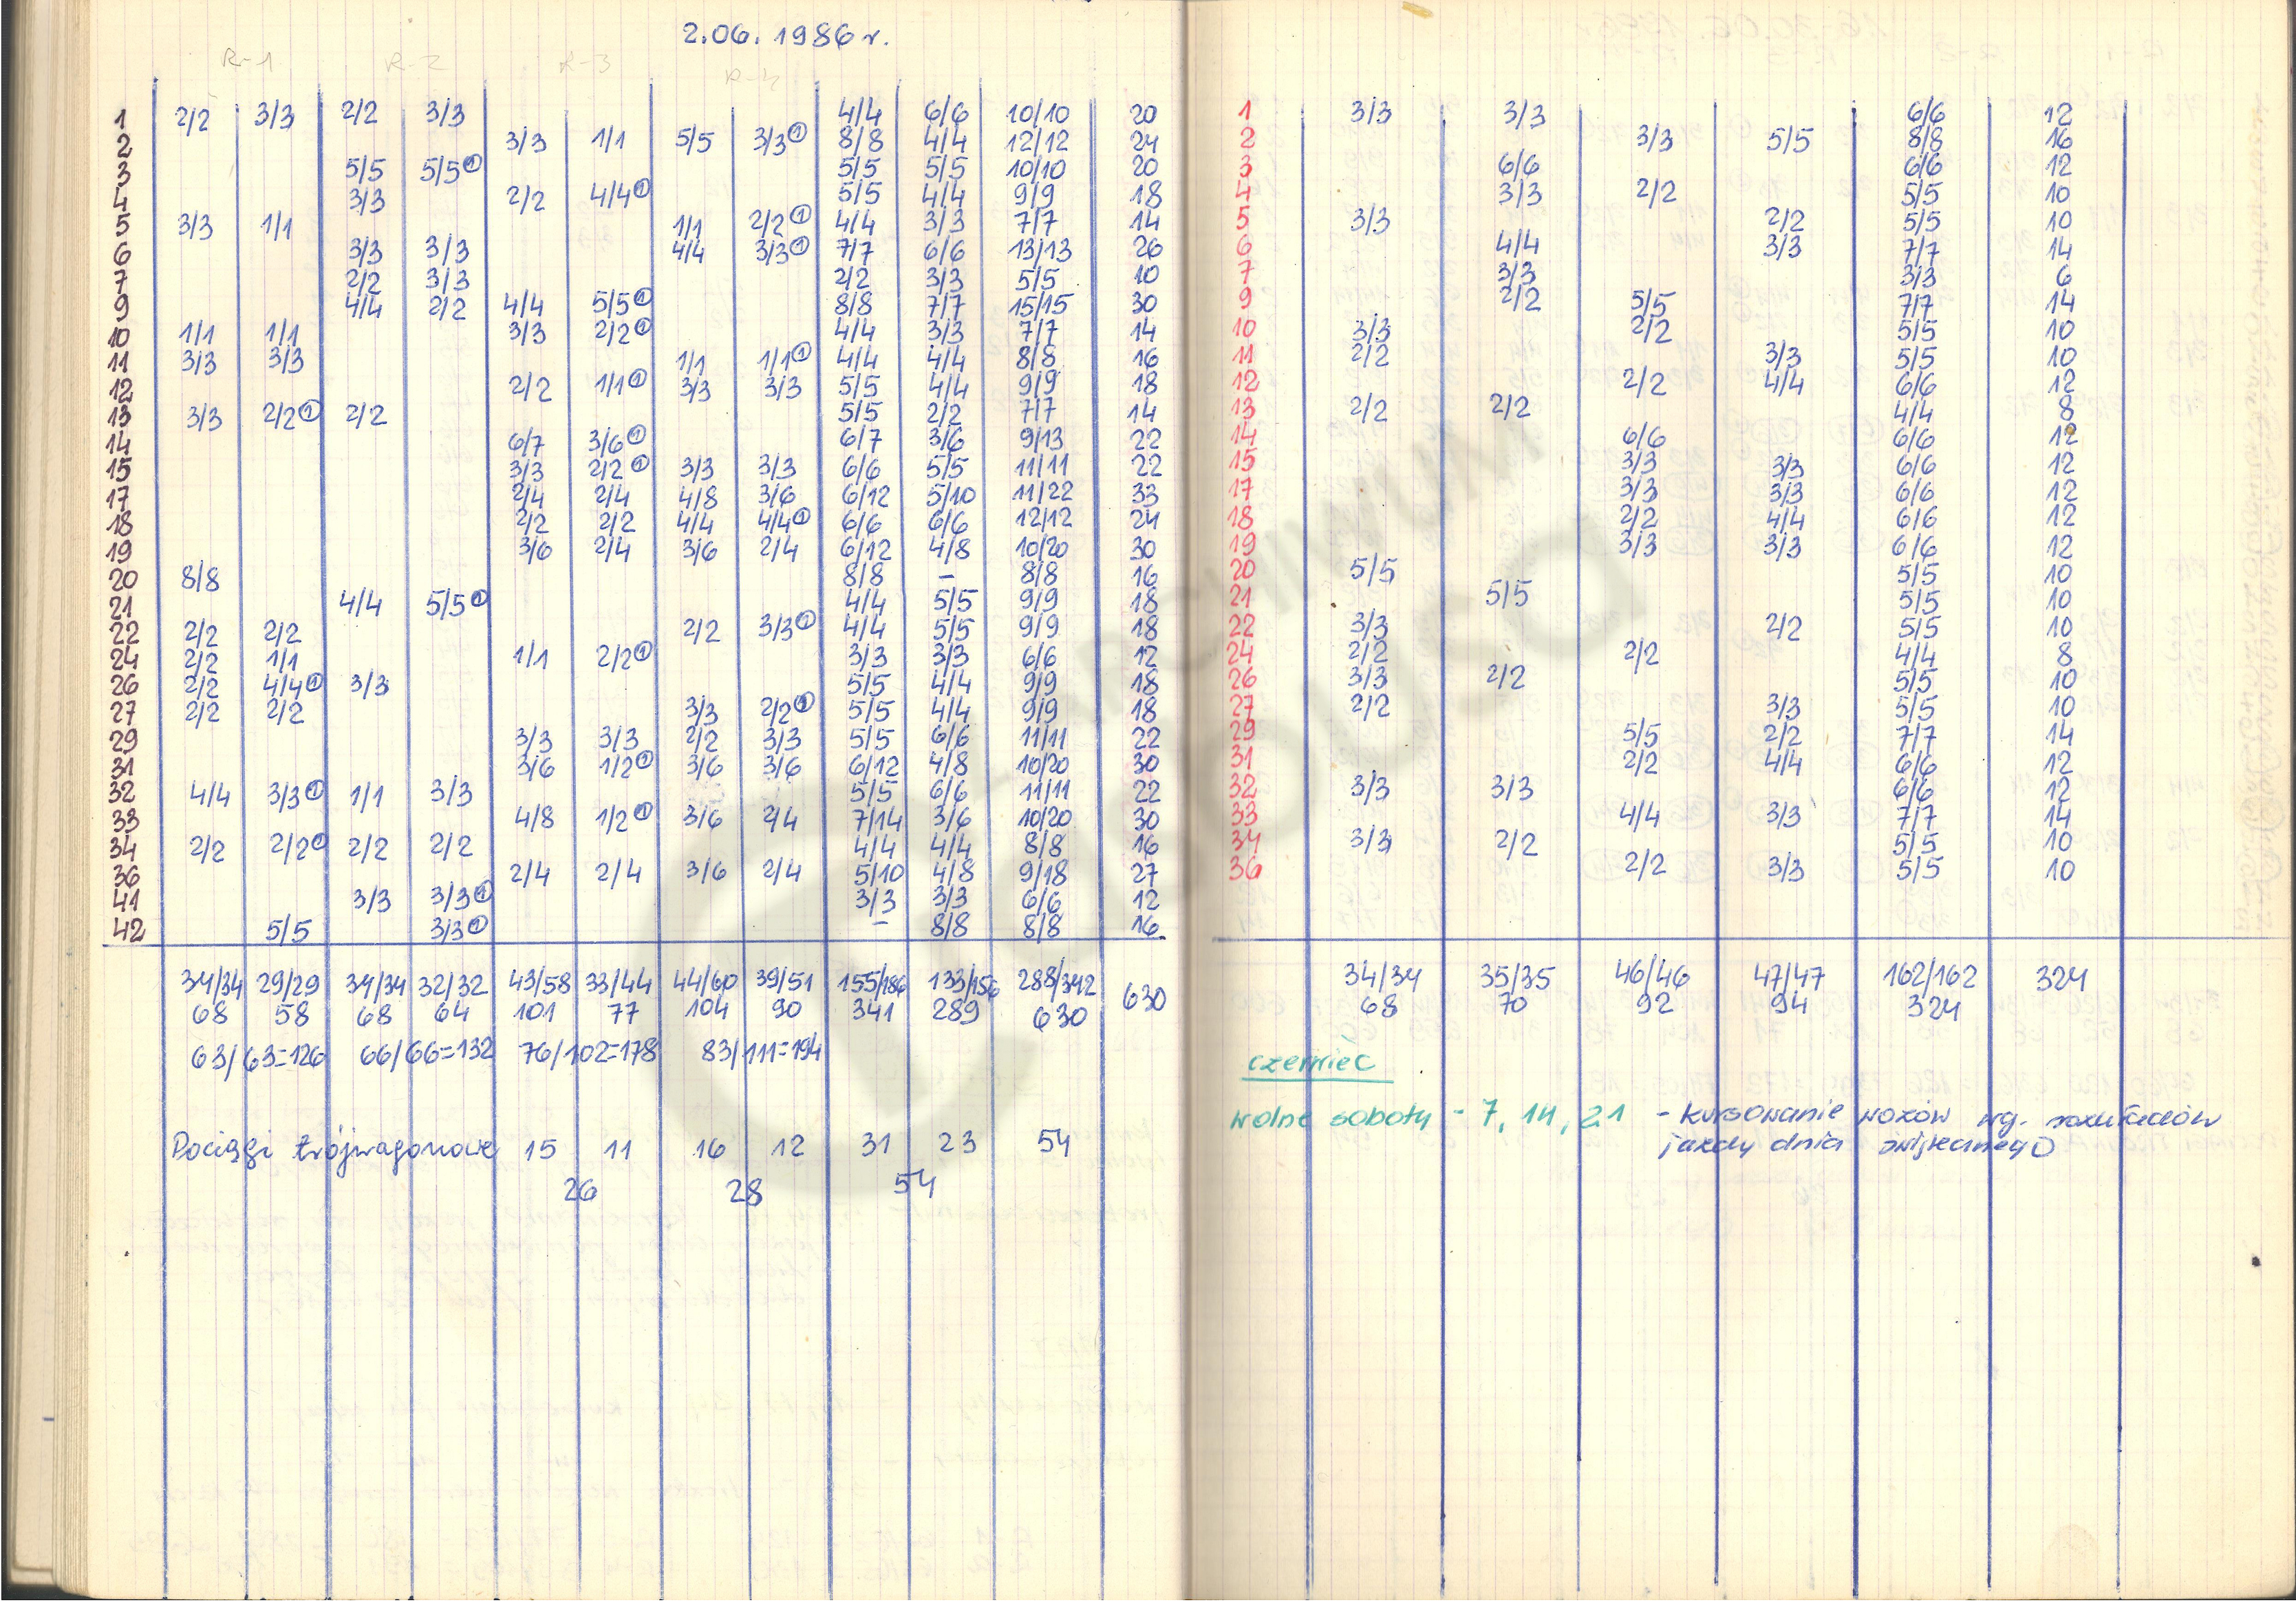 2.06.1986 r.
R-1 R-2 R-3 R-4
1 2/2 3/3 2/2 3/3 4/4 6/6 10/10 20
2 3/3 1/1 5/5 3/3① 8/8 4/4 12/12 24
3 5/5 5/5① 5/5 5/5 10/10 20
4 3/3 2/2 4/4① 5/5 4/4 9/9 18
5 3/3 1/1 1/1 2/2① 4/4 3/3 7/7 14
6 3/3 3/3 4/4 3/3① 7/7 6/6 13/13 26
7 2/2 3/3 2/2 3/3 5/5 10
9 4/4 2/2 4/4 5/5① 8/8 7/7 15/15 30
10 1/1 1/1 3/3 2/2① 4/4 3/3 7/7 14
11 3/3 3/3 1/1 1/1① 4/4 4/4 8/8 16
12 2/2 1/1① 3/3 3/3 5/5 4/4 9/9 18
13 3/3 2/2① 2/2 5/5 2/2 7/7 14
14 6/7 3/6① 6/7 3/6 9/13 22
15 3/3 2/2① 3/3 3/3 6/6 5/5 11/11 22
17 2/4 2/4 4/8 3/6 6/12 5/10 11/22 33
18 2/2 2/2 4/4 4/4① 6/6 6/6 12/12 24
19 3/6 2/4 3/6 2/4 6/12 4/8 10/20 30
20 8/8 8/8 - 8/8 16
21 4/4 5/5① 4/4 5/5 9/9 18
22 2/2 2/2 2/2 3/3① 4/4 5/5 9/9 18
24 2/2 1/1 1/1 2/2① 3/3 3/3 6/6 12
26 2/2 4/4① 3/3 5/5 4/4 9/9 18
27 2/2 2/2 3/3 2/2① 5/5 4/4 9/9 18
29 3/3 3/3 2/2 3/3 5/5 6/6 11/11 22
31 3/6 1/2① 3/6 3/6 6/12 4/8 10/20 30
32 4/4 3/3① 1/1 3/3 5/5 6/6 11/11 22
33 4/8 1/2① 3/6 2/4 7/14 3/6 10/20 30
34 2/2 2/2① 2/2 2/2 4/4 4/4 8/8 16
36 2/4 2/4 3/6 2/4 5/10 4/8 9/18 27
41 3/3 3/3① 3/3 3/3 6/6 12
42 5/5 3/3① - 8/8 8/8 16
34/34 29/29 34/34 32/32 43/58 33/44 44/60 39/51 155/186 133/156 288/342 630
68 58 68 64 101 77 104 90 341 289 630
63/63=126 66/66=132 76/102=178 83/111=194
Pociągi trójwagonowe 15 11 16 12 31 23 54
26 28 54
1 3/3 3/3 6/6 12
2 3/3 5/5 8/8 16
3 6/6 6/6 12
4 3/3 2/2 5/5 10
5 3/3 2/2 5/5 10
6 4/4 3/3 7/7 14
7 3/3 3/3 6
9 2/2 5/5 7/7 14
10 3/3 2/2 5/5 10
11 2/2 3/3 5/5 10
12 2/2 4/4 6/6 12
13 2/2 2/2 4/4 8
14 6/6 6/6 12
15 3/3 3/3 6/6 12
17 3/3 3/3 6/6 12
18 2/2 4/4 6/6 12
19 3/3 3/3 6/6 12
20 5/5 5/5 10
21 5/5 5/5 10
22 3/3 2/2 5/5 10
24 2/2 2/2 4/4 8
26 3/3 2/2 5/5 10
27 2/2 3/3 5/5 10
29 5/5 2/2 7/7 14
31 2/2 4/4 6/6 12
32 3/3 3/3 6/6 12
33 4/4 3/3 7/7 14
34 3/3 2/2 5/5 10
36 2/2 3/3 5/5 10
34/34 35/35 46/46 47/47 162/162 324
68 70 92 94 324
czerwiec
wolne soboty - 7, 14, 21 - kursowanie wozów wg. rozkładów
jazdy dnia świątecznego